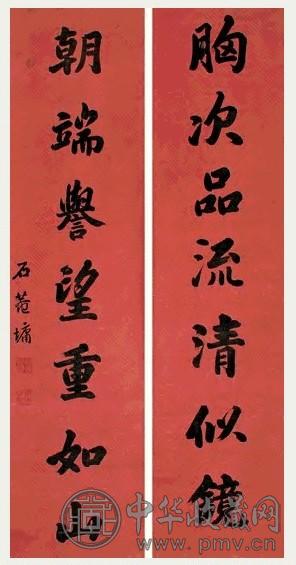 胸次品流清似镜
朝端譽望重如山
石菴墉
中华收藏网
www.pmv.cn